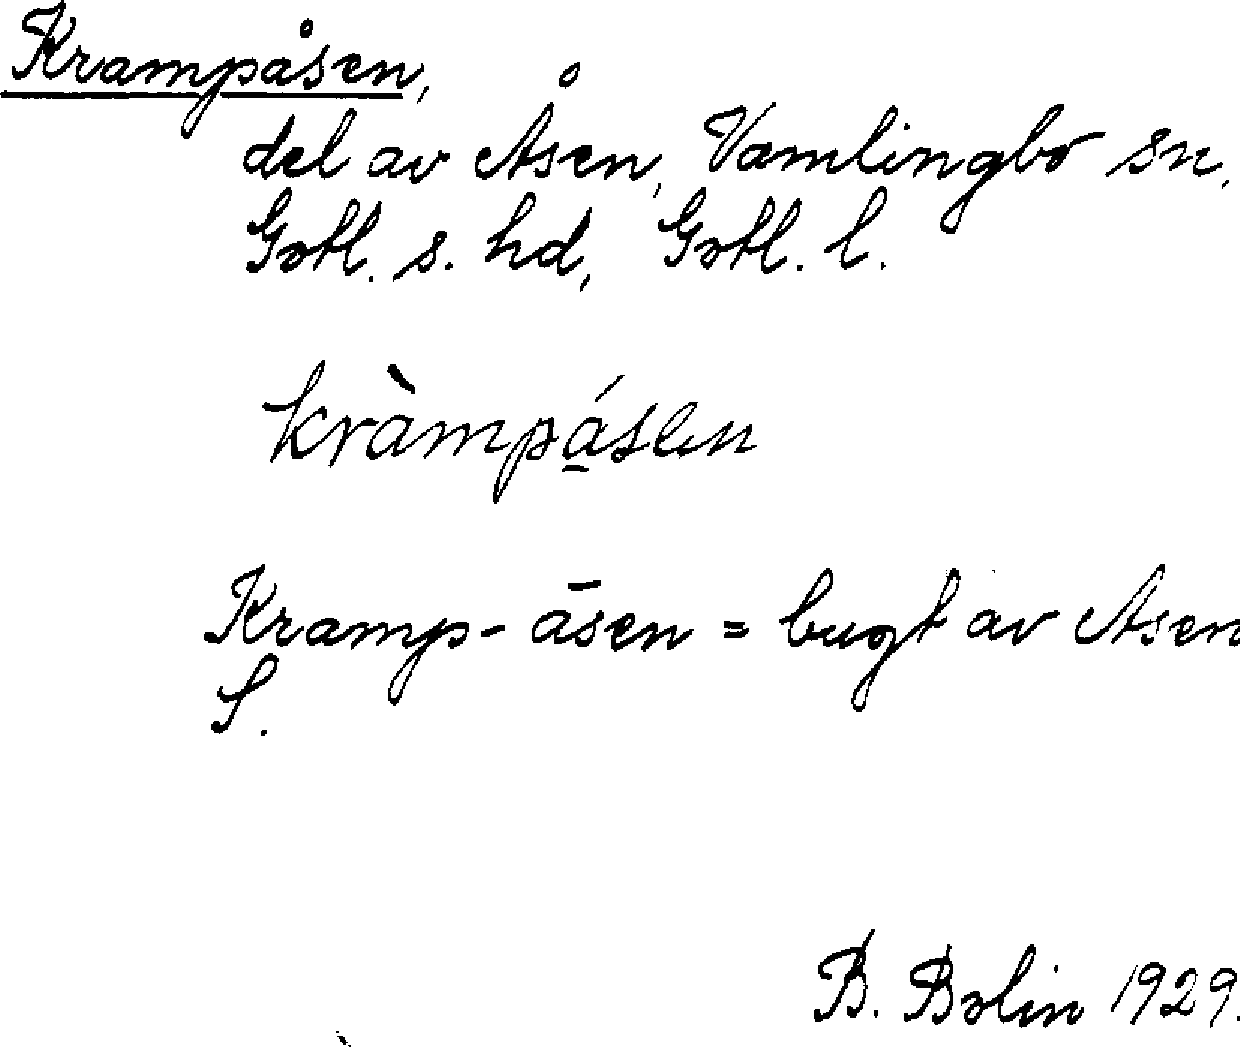 Krampåsen,
del av Åsen, Vamlingbo sn.
Gotl. s. hd, Gotl. l.
kràmpá̱sen
Kramp-āsen = bugt av Asen
S.
B. Bolin 1929.